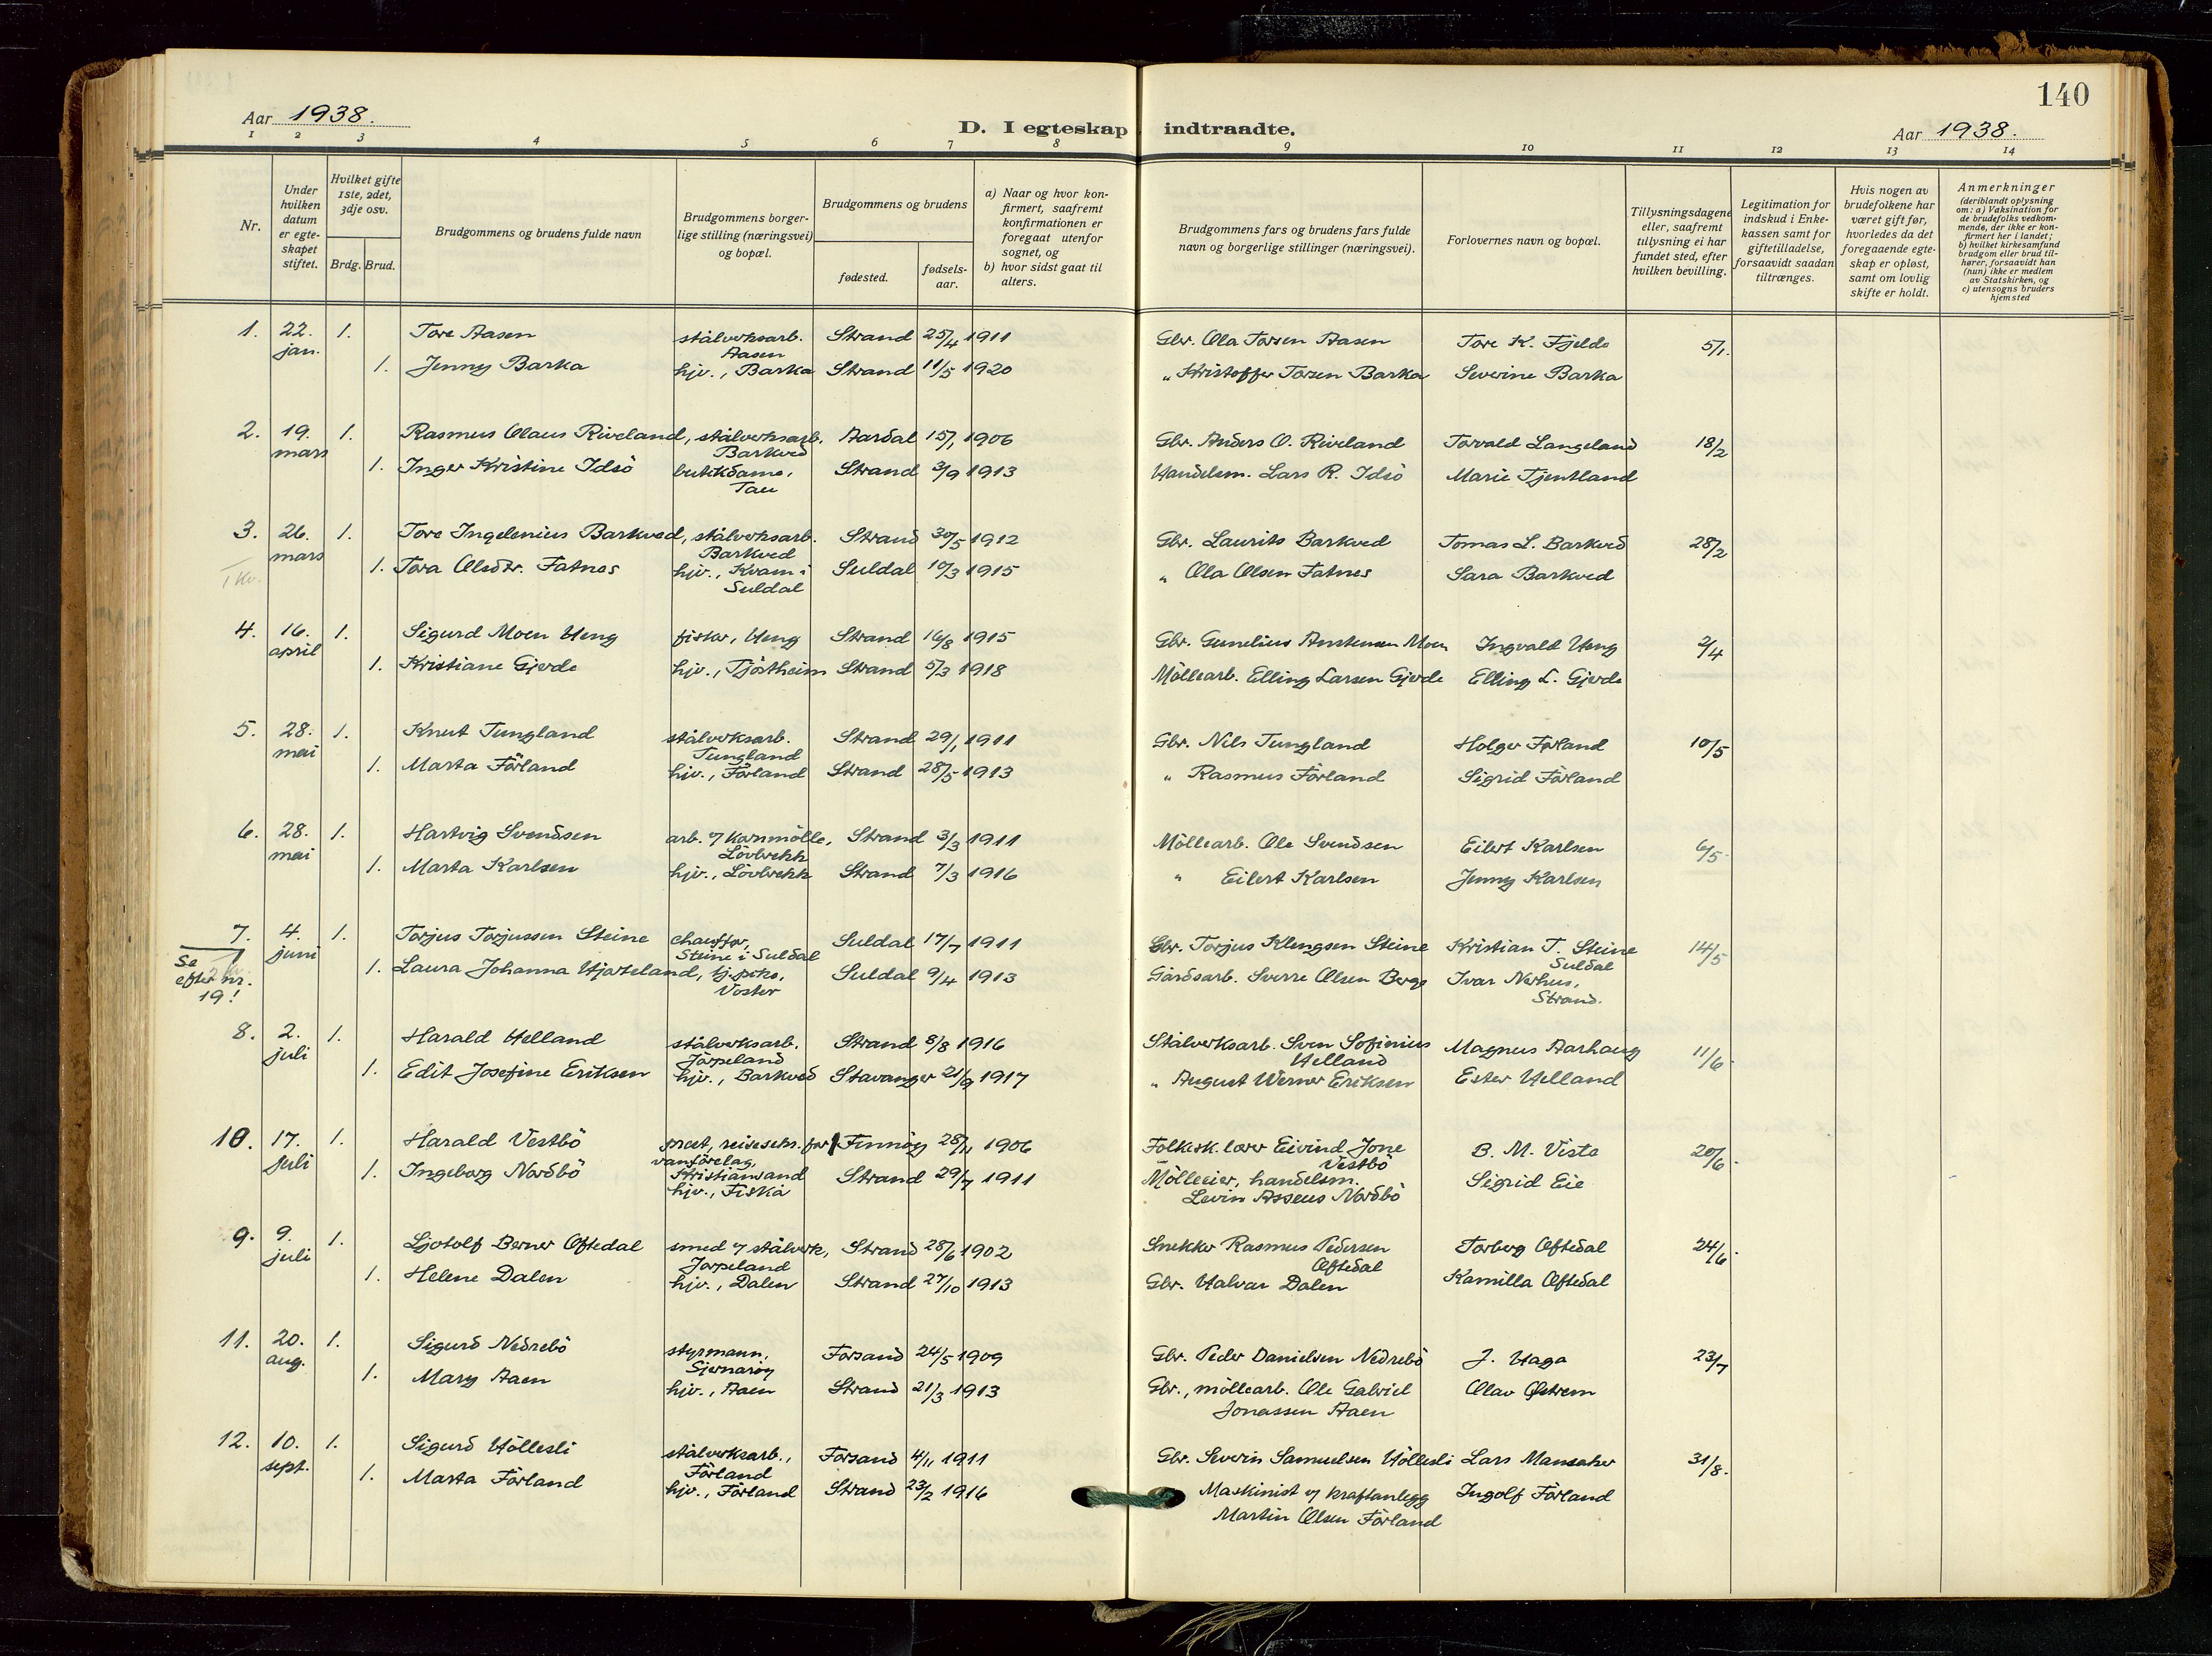 140
Aar 1938.
D. I egteskap indtraadte.
Aar 1938.
1 2 3 4 5 6 7 8 9 10 11 12 13 14
Nr.
Under hvilken datum er egte-skapet stiftet.
Hvilket gifte 1ste, 2det, 3dje osv.
Brdg. Brud.
Brudgommens og brudens fulde navn
Brudgommens borger-lige stilling (næringsvei) og bopæl.
Brudgommens og brudens
fødested.
fødsels-aar.
a) Naar og hvor kon-firmert, saafremt konfirmationen er foregaat utenfor sognet, og
b) hvor sidst gaat til alters.
Brudgommens fars og brudens fars fulde navn og borgerlige stillinger (næringsvei).
Forlovernes navn og bopæl.
Tillysningsdagene eller, saafremt tillysning ei har fundet sted, efter hvilken bevilling.
Legitimation for indskud i Enke-kassen samt for giftetilladelse, forsaavidt saadan tiltrænges.
Hvis nogen av brudefolkene har været gift før, hvorledes da det foregaaende egte-skap er opløst, samt om lovlig skifte er holdt.
Anmerkninger (deriblandt oplysning om: a) Vaksination for de brudefolks vedkom-mende, der ikke er kon-firmert her i landet; b) hvilket kirkesamfund brudgom eller brud til-hører, forsaavidt han (hun) ikke er medlem av Statskirken, og c) utensogns bruders hjemsted
1. 22. jan. 1. Tore Aasen stålverksarb. Aasen Strand 25/4 1911 Gbr. Ola Torsen Aasen Tore K. Fjelde 5/1.
1. Jenny Barka hjv., Barka Strand 11/5 1920 " Kristoffer Torsen Barka Severine Barka
2. 19. mars 1. Rasmus Olaus Riveland, stålverksarb. Barkved Aardal 15/1 1906 Gbr. Anders O. Riveland Torvald Langeland 18/2
1. Inger Kristine Idsö butikkdame, Tau Strand 3/9 1913 Handelsm. Lars R. Idsö Marie Tjentland
3. 26. mars 1. Tore Ingelenius Barkved, stålverksarb. Barkved Strand 30/5 1912 Gbr. Laurits Barkved Tomas L. Barkved 28/2
1. Tora Olsdtr. Fatnes hjv., Kvam i Suldal Suldal 10/3 1915 " Ola Olsen Fatnes Sara Barkved
4. 16. april 1. Sigurd Moen Heng fisker, Heng Strand 16/8 1915 Gbr. Gunelius Anstensen Moen Ingvald Heng 2/4
1. Kristiane Gjerde hjv., Tjöstheim Strand 5/3 1918 Möllearb. Elling Larsen Gjerde Elling L. Gjerde
5. 28. mai 1. Knut Tungland stålverksarb. Tungland Strand 29/1 1911 Gbr. Nils Tungland Holger Førland 10/5
1. Marta Förland hjv., Förland Strand 28/5 1913 " Rasmus Förland Sigrid Förland
6. 28. mai 1. Hartvig Svendsen arb. v/ kornmölle, Lövbrekk Strand 3/3 1911 Möllearb. Ole Svendsen Eilert Karlsen 6/5.
1. Marta Karlsen hjv., Lövbrekk Strand 7/3 1916 " Eilert Karlsen Jenny Karlsen
7. 4. juni 1. Torjus Torjussen Steine chauffør, Steine i Suldal Suldal 17/7 1911 Gbr. Torjus Klengsen Steine Kristian T. Steine Suldal 14/5
Se efter nr. 19!
1. Laura Johanna Hjorteland, tj.pike, Voster Suldal 9/4 1913 Gårdsarb. Sverre Olsen Berge Ivar Nerhus, Strand.
8. 2. juli 1. Harald Helland stålverksarb. Jörpeland Strand 8/8 1916 Stålverksarb. Sven Sofinius Helland Magnus Aarhaug 11/6.
1. Edit Josefine Eriksen hjv., Barkved Stavanger 21/9 1917 " August Werner Eriksen Ester Helland
10. 17. juli 1. Harald Vestbö prest, reisesekr. for vanförelag, Kristiansand Finnöy 28/11 1906 Folkesk.lærer Eivind Jone Vestbö B. M. Viste 20/6.
1. Ingeborg Nordbö hjv., Fiskå Strand 29/7 1911 Mölleeier, handelsm. Levin Asseus Nordbö Sigrid Eie
9. 9. juli 1. Ljotolf Berner Oftedal smed v/ stålverk, Jørpeland Strand 28/6 1902 Snekker Rasmus Pedersen Oftedal Torberg Oftedal 24/6.
1. Helene Dalen hjv., Dalen Strand 27/10 1913 Gbr. Halvar Dalen Kamilla Oftedal
11. 20. aug. 1. Sigurd Nedrebö styrmann, Sjernarøy Forsand 24/5 1909 Gbr. Peder Danielsen Nedrebö J. Haga 23/7
1. Mary Aaen hjv., Aaen Strand 21/3 1913 Gbr., möllearb. Ole Gabriel Jonassen Aaen Olav Østrem
12. 10. sept. 1. Sigurd Höllesli stålverksarb., Förland Forsand 4/11 1911 Gbr. Severin Samuelsen Höllesli Lars Mansaker 31/8.
1. Marta Förland hjv., Förland Strand 23/2 1916 Maskinist v/ kraftanlegg Martin Olsen Förland Ingolf Förland